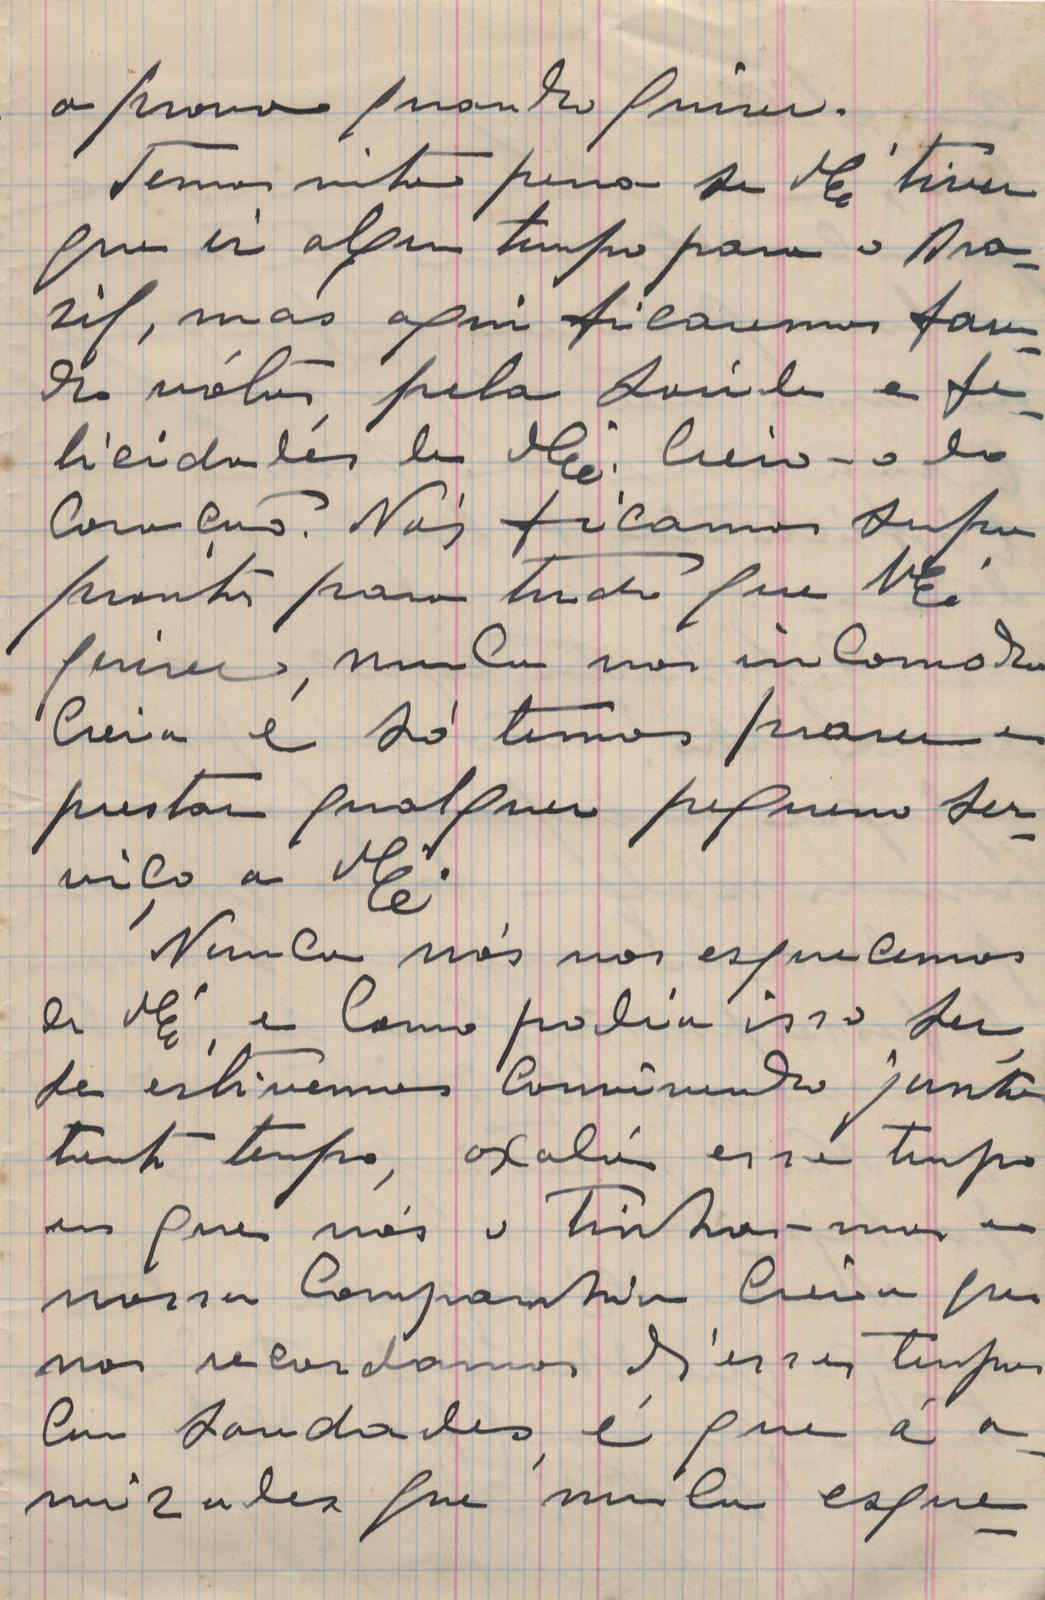 a prova quando quizer.
Temos muita pena se V.Ex.ª tiver
que ir algum tempo para o Bra-
zil, mas aqui ficaremos fazen-
do vótos, pela saúde e fe-
licidades de V.Ex.ª Creia-o do
coração. Nós ficamos sempre
prontos para tudo que V.Ex.ª
quizer, nunca nos incomoda
creia e só temos prazer em
prestar qualquer pequeno ser-
viço a V.Ex.ª
Nunca nós nos esquecemos
de V.Ex.ª, e como podia isso ser,
se estivemos convivendo juntos
tanto tempo, oxalá esse tempo
em que nós o tinha-mos em
nossa companhia creia que
nos recordamos d'esses tempos
com saudades, é que á a-
mizades que nunca esque-